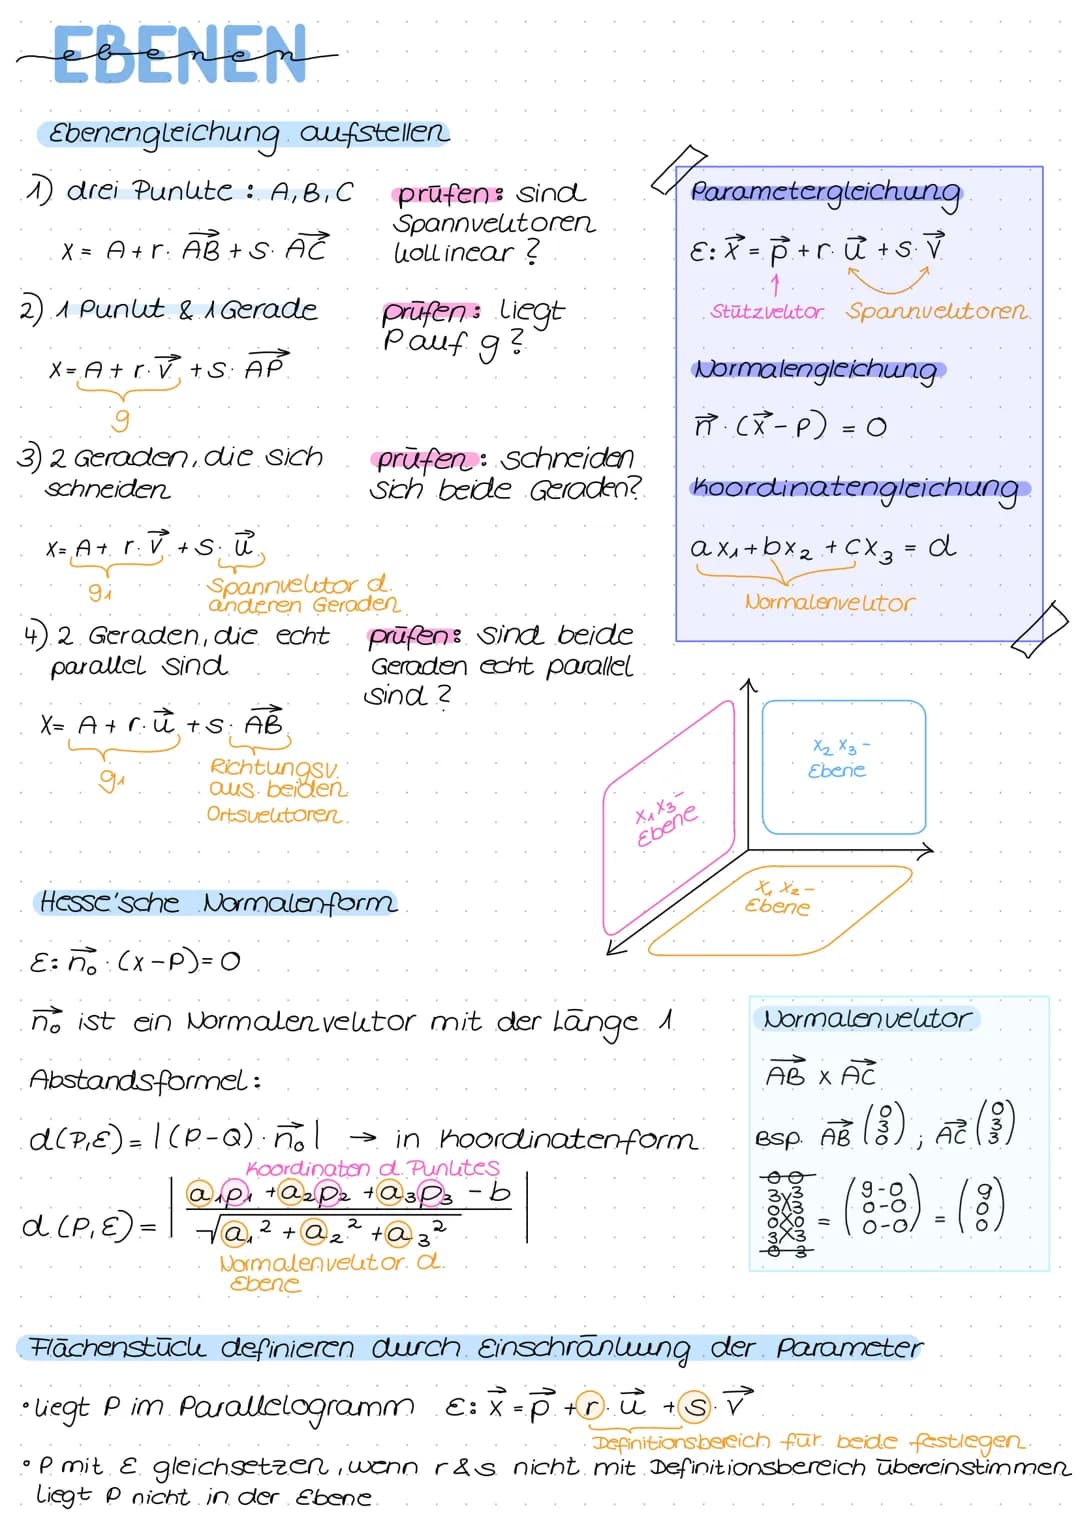 EBENEN
ebenen
Ebenengleichung aufstellen
1) drei Punkte : A, B, C
prüfen: sind
Spannvektoren
kollinear ?
X = A + r · AB⃗ + s · AC⃗
2) 1 Punkt & 1 Gerade
prüfen: liegt
P auf g ?
X = A + r · v⃗ + s · AP⃗
g
3) 2 Geraden, die sich
schneiden
prüfen: schneiden
sich beide Geraden?
X = A + r · v⃗ + s · u⃗
g₁
Spannvektor d.
anderen Geraden
4) 2 Geraden, die echt
parallel sind
prüfen: sind beide
Geraden echt parallel
sind ?
X = A + r · u⃗ + s · AB⃗
g₁
Richtungsv.
aus beiden
Ortsvektoren
Parametergleichung
ε: x⃗ = p⃗ + r · u⃗ + s · v⃗
Stützvektor Spannvektoren
Normalengleichung
n⃗ · (x⃗ - p) = 0
Koordinatengleichung
ax₁ + bx₂ + cx₃ = d
Normalenvektor
x₂ x₃ -
Ebene
x₁ x₃ -
Ebene
x₁ x₂ -
Ebene
Hesse'sche Normalenform
ε: n₀⃗ · (x - p) = 0
n₀⃗ ist ein Normalenvektor mit der Länge 1
Abstandsformel :
d(P, ε) = |(P - Q) · n₀⃗| → in Koordinatenform
Koordinaten d. Punktes
d (P, ε) = | (a₁p₁ + a₂p₂ + a₃p₃ - b) / √(a₁² + a₂² + a₃²) |
Normalenvektor d.
Ebene
Normalenvektor
AB⃗ x AC⃗
Bsp. AB⃗ (0 3 0) , AC⃗ (0 3 3)
0 0
3 3
0 3
0 0
3 3
0 3
= (9-0 0-0 0-0) = (9 0 0)
Flächenstück definieren durch Einschränkung der Parameter
• liegt P im Parallelogramm ε: x⃗ = p⃗ + r · u⃗ + s · v⃗
Definitionsbereich für beide festlegen
• P mit ε gleichsetzen, wenn r & s nicht mit Definitionsbereich übereinstimmen
liegt P nicht in der Ebene